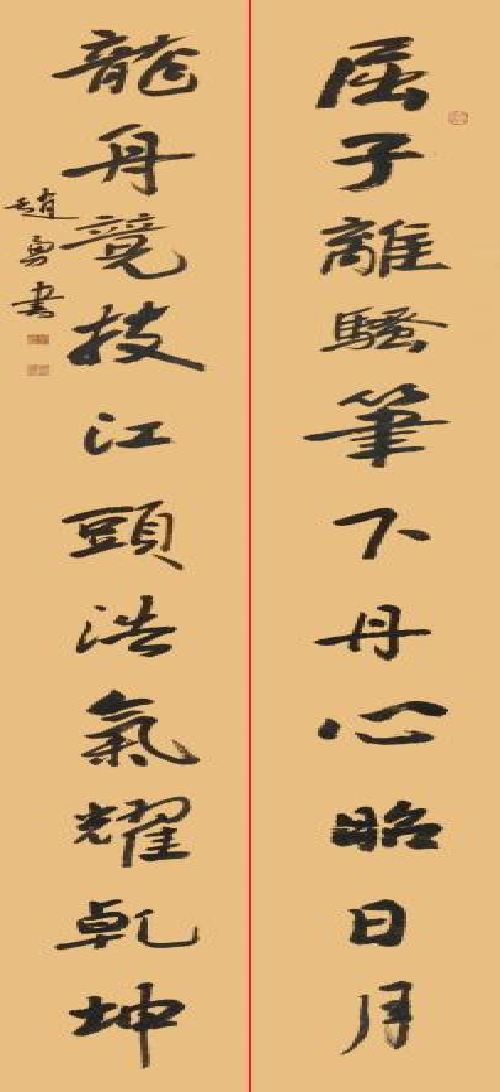 屈子離騷筆下丹心昭日月
龍舟競技江頭浩氣耀乾坤
趙勇書